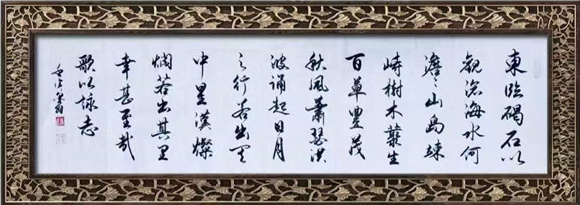 東臨碣石以
觀滄海水何
澹々山島竦
峙樹木叢生
百草豐茂
秋風蕭瑟洪
波涌起日月
之行若出其
中星漢燦
爛若出其里
幸甚至哉
歌以詠志